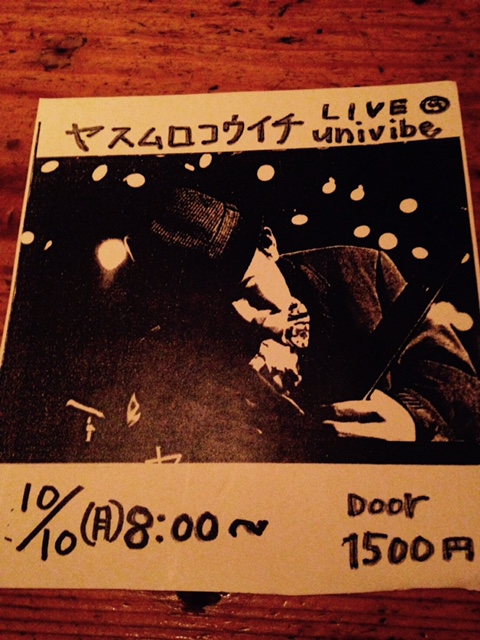 ヤスムロコウイチ LIVE
univibe
10/10(月)8:00〜
Door
1500円